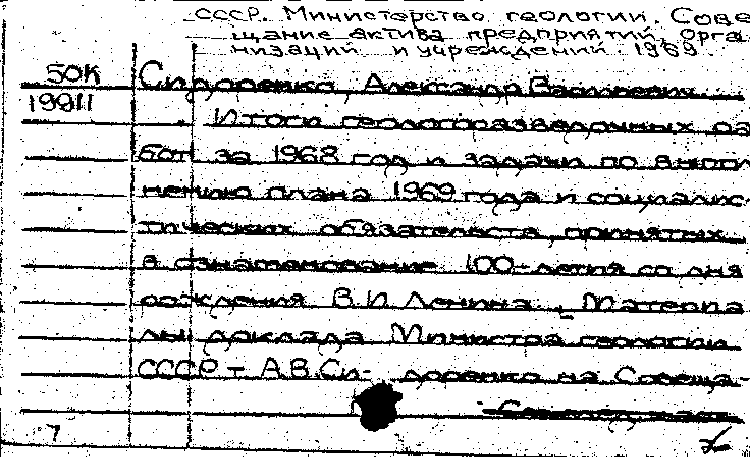 СССР. Министерство геологии. Сове-
щание актива предприятий, орга-
низаций и учреждений. 1969.
50К Сидоренко, Александр Васильевич.
19911 Итоги геологоразведочных ра-
бот за 1968 год и задачи по выпол-
нению плана 1969 года и социалис-
тических обязательств, принятых
в ознаменование 100-летия со дня
рождения В.И. Ленина. Материа-
лы доклада Министра геологии
СССР – А.В. Си- доренко на Совеща-
7